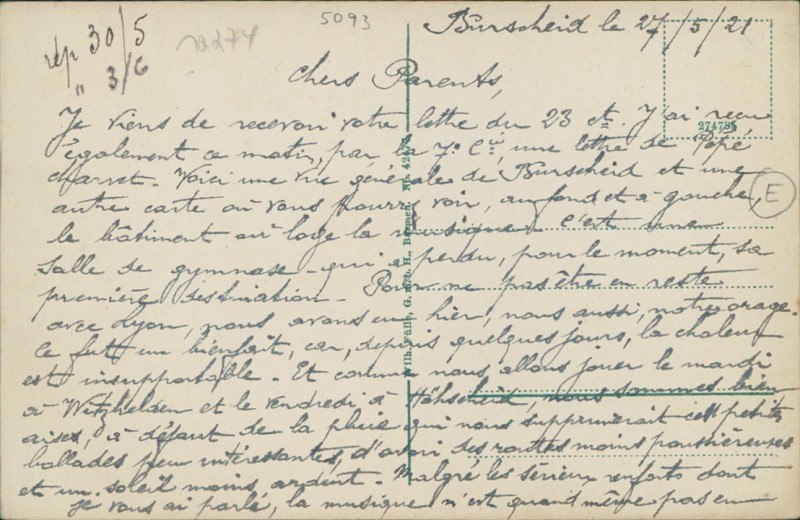 5093
Burscheid le 27/5/21
rép 30/5
" 3/6
274795
Chers Parents,
Je viens de recevoir votre lettre du 23 ct. J'ai reçu
également ce matin, par la 7e Cie, une lettre de Pépé
Charret. Voici une vue générale de Burscheid et une
autre carte où vous pourrez voir, au fond et à gauche,
E
le bâtiment où loge la musique. C'est une
salle de gymnase qui a perdu, pour le moment, sa
première destination. Pour ne pas être en reste
avec Lyon, nous avons eu hier, nous aussi, notre orage.
Ce fut un bienfait, car, depuis quelques jours, la chaleur
est insupportable. Et comme nous allons jouer le mardi
à Witzhelden et le vendredi à Höhscheid, nous sommes bien
aises, à défaut de la pluie qui nous supprimerait ces petites
ballades peu intéressantes, d'avoir des routes moins poussiéreuses
et un soleil moins ardent. Malgré les sérieux renforts dont
je vous ai parlé, la musique n'est quand même pas en